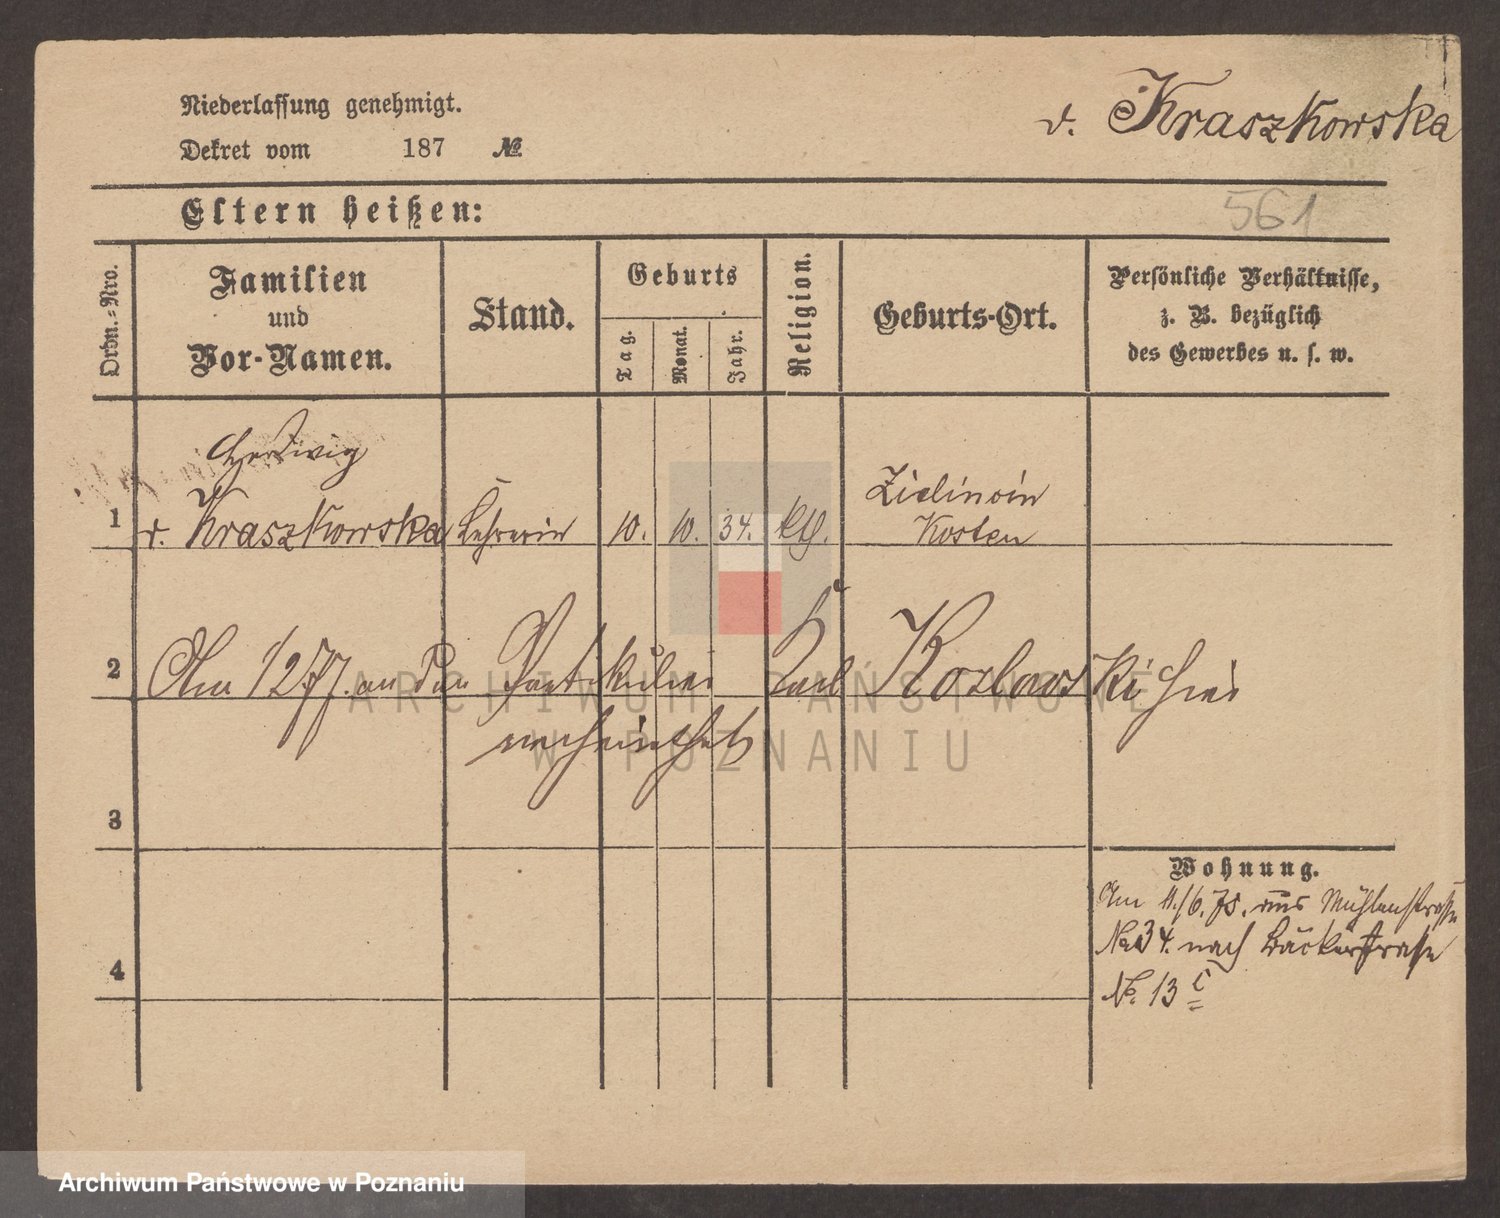 v. Kraszkowska
Niederlassung genehmigt.
Dekret vom 187 №
Eltern heißen:
561
Ordn.-Nro.
Familien
und
Vor-Namen.
Stand.
Geburts
Tag.
Monat.
Jahr.
Religion.
Geburts-Ort.
Persönliche Verhältnisse,
z. B. bezüglich
des Gewerbes u. s. w.
Hedwig
1 v. Kraszkowska Lehrerin 10. 10. 34. kth.
Kosten
2 Am 1277. an den Partikulier Carl Kozlowski hier
verheirathet
3
Wohnung.
Am 11./6. 75. aus Mühlenstraße
No 34. nach Bäckerstraße
№. 13 c
4
ARCHIWUM PAŃSTWOWE
W POZNANIU
Archiwum Państwowe w Poznaniu